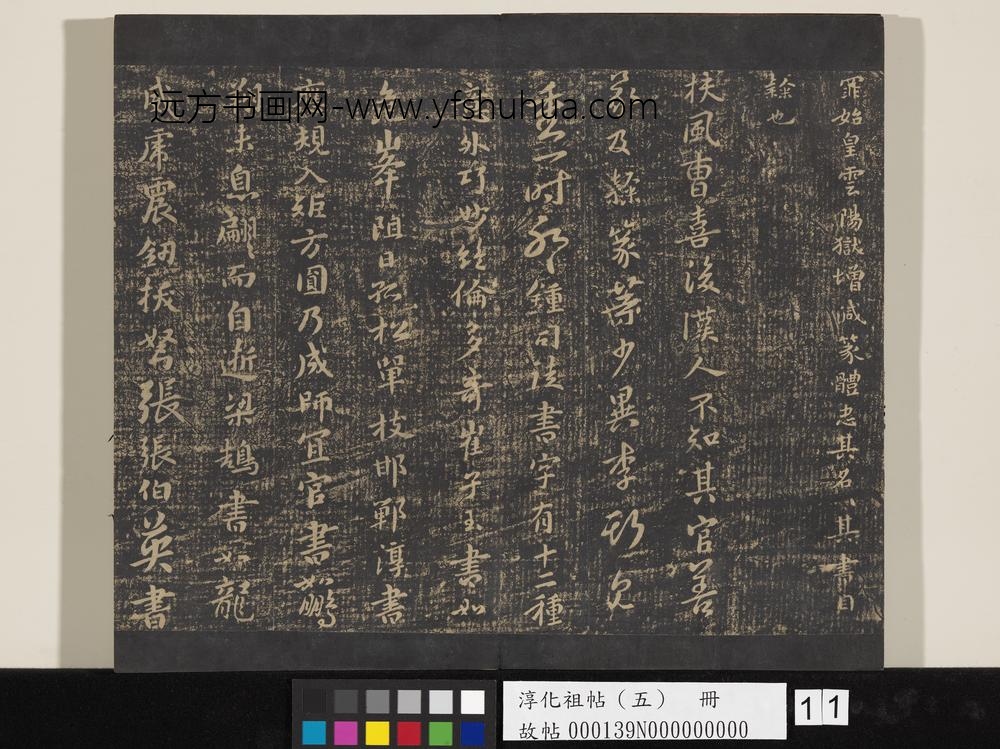 罪始皇雲陽獄增減篆體其名其書曰
隸也
扶風曹喜後漢人不知其官善
篆及隸篆少異李斯
一時鍾司徒書字有十二種
意外巧妙絕倫多奇崔子玉書如
危峯阻日孤松單枝邯鄲淳書
應規入矩方圓乃成師宜官書如鵬
未息翩而自逝梁鵠書如龍
虎震劒拔弩張張伯英書
远方书画网-www.yfshuhua.com/
淳化祖帖（五） 冊
故帖000139N000000000
11